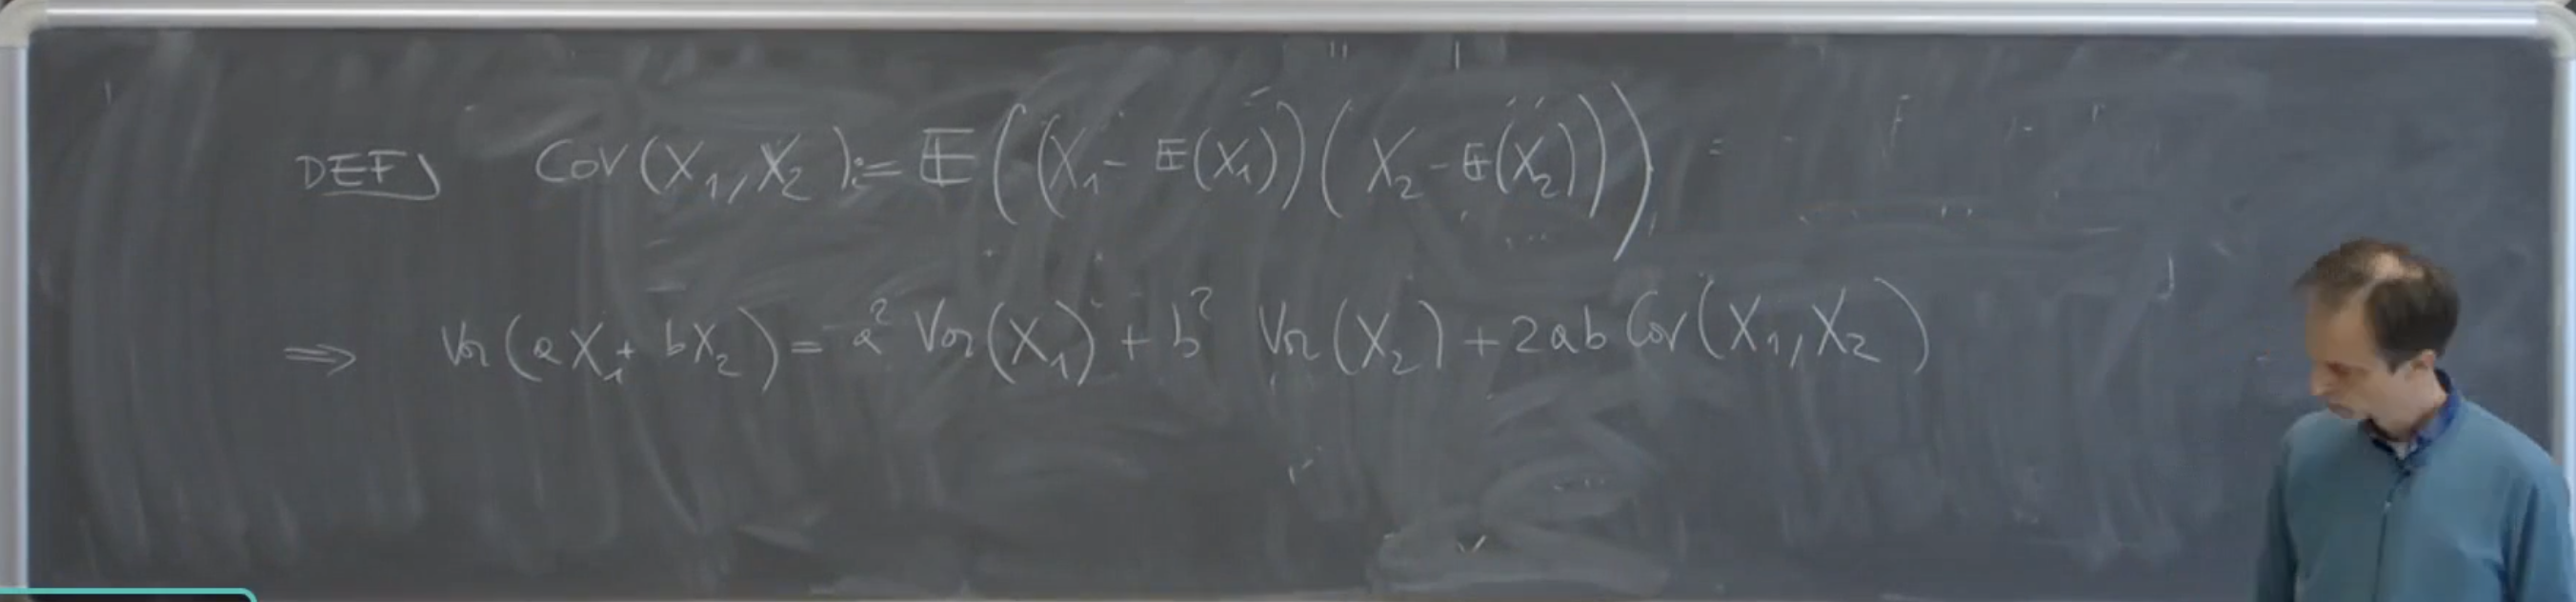 DEF) Cov(X₁, X₂) := 𝔼((X₁ - 𝔼(X₁))(X₂ - 𝔼(X₂)))
⇒ Var(aX₁ + bX₂) = a² Var(X₁) + b² Var(X₂) + 2ab Cov(X₁, X₂)